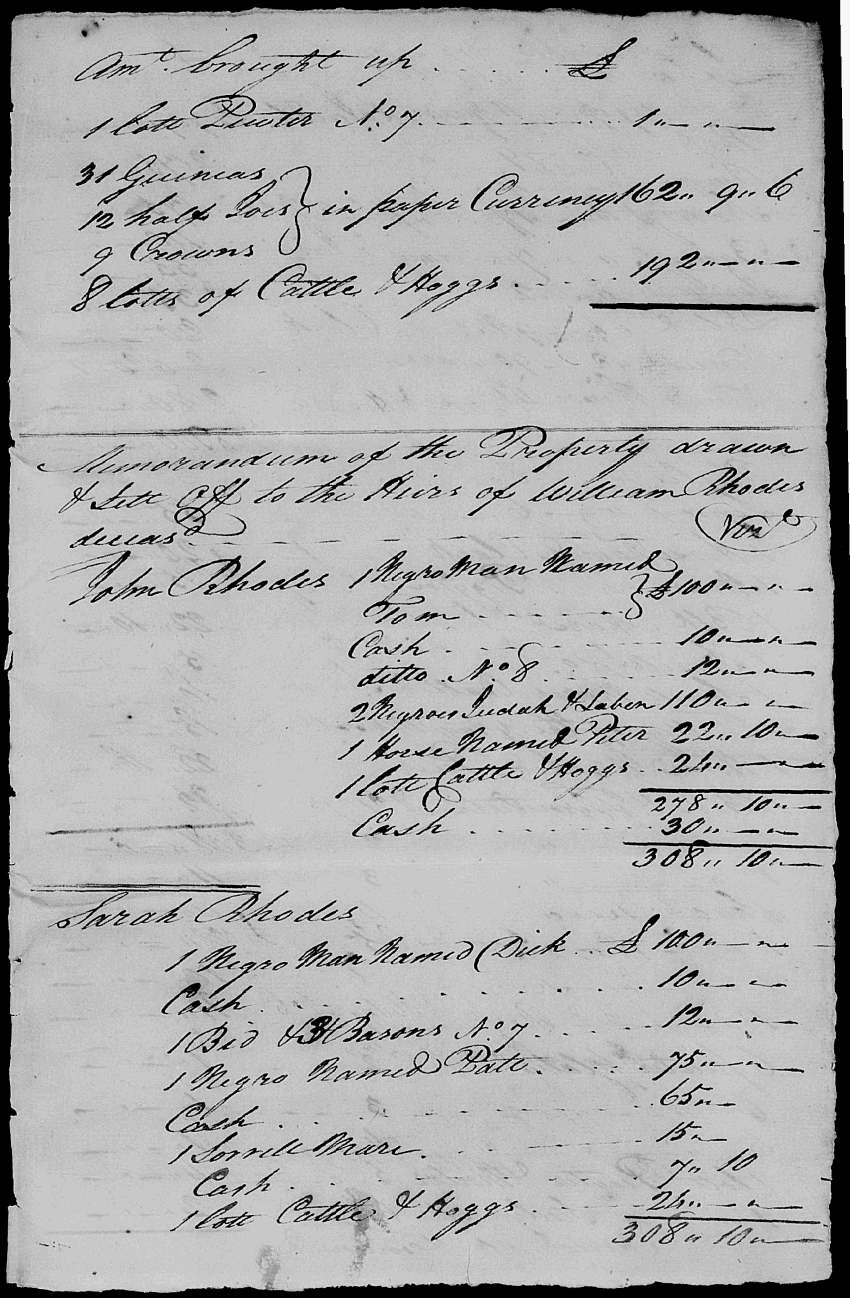 Amt. brought up . . . . . £
1 lott Pewter No. 7 . . . . . 1 " — " —
31 Guineas
12 half Joes } in paper Currency 162 " 9 " 6
9 Crowns
8 lotts of Cattle & Hoggs . . . . . 192 " — " —
Memorandum of the Property drawn
& Sett Off to the Heirs of William Rhodes
deceasd. — — — — — Vizt
John Rhodes 1 Negro Man Named
Tom . . . . . } £ 100 " — " —
Cash . . . . . 10 " — " —
ditto No. 8 . . . . . 12 " — " —
2 Negroes Judah & Saben 110 " — " —
1 Horse Named Peter 22 " 10 " —
1 lott Cattle & Hoggs . . 24 " — " —
278 " 10 " —
Cash . . . . . 30 " — " —
308 " 10 " —
Sarah Rhodes
1 Negro Man Named Dick . . £ 100 " — " —
Cash . . . . . 10 " — " —
1 Bed & 3 Basons No. 7 . . . . . 12 " — " —
1 Negro Named Patt . . . . . 75 " — " —
Cash . . . . . 65 " —
1 Sorrell Mare . . . . . 15 " —
Cash . . . . . 7 " 10
1 lott Cattle & Hoggs . . . . . 24 " — " —
308 " 10 " —